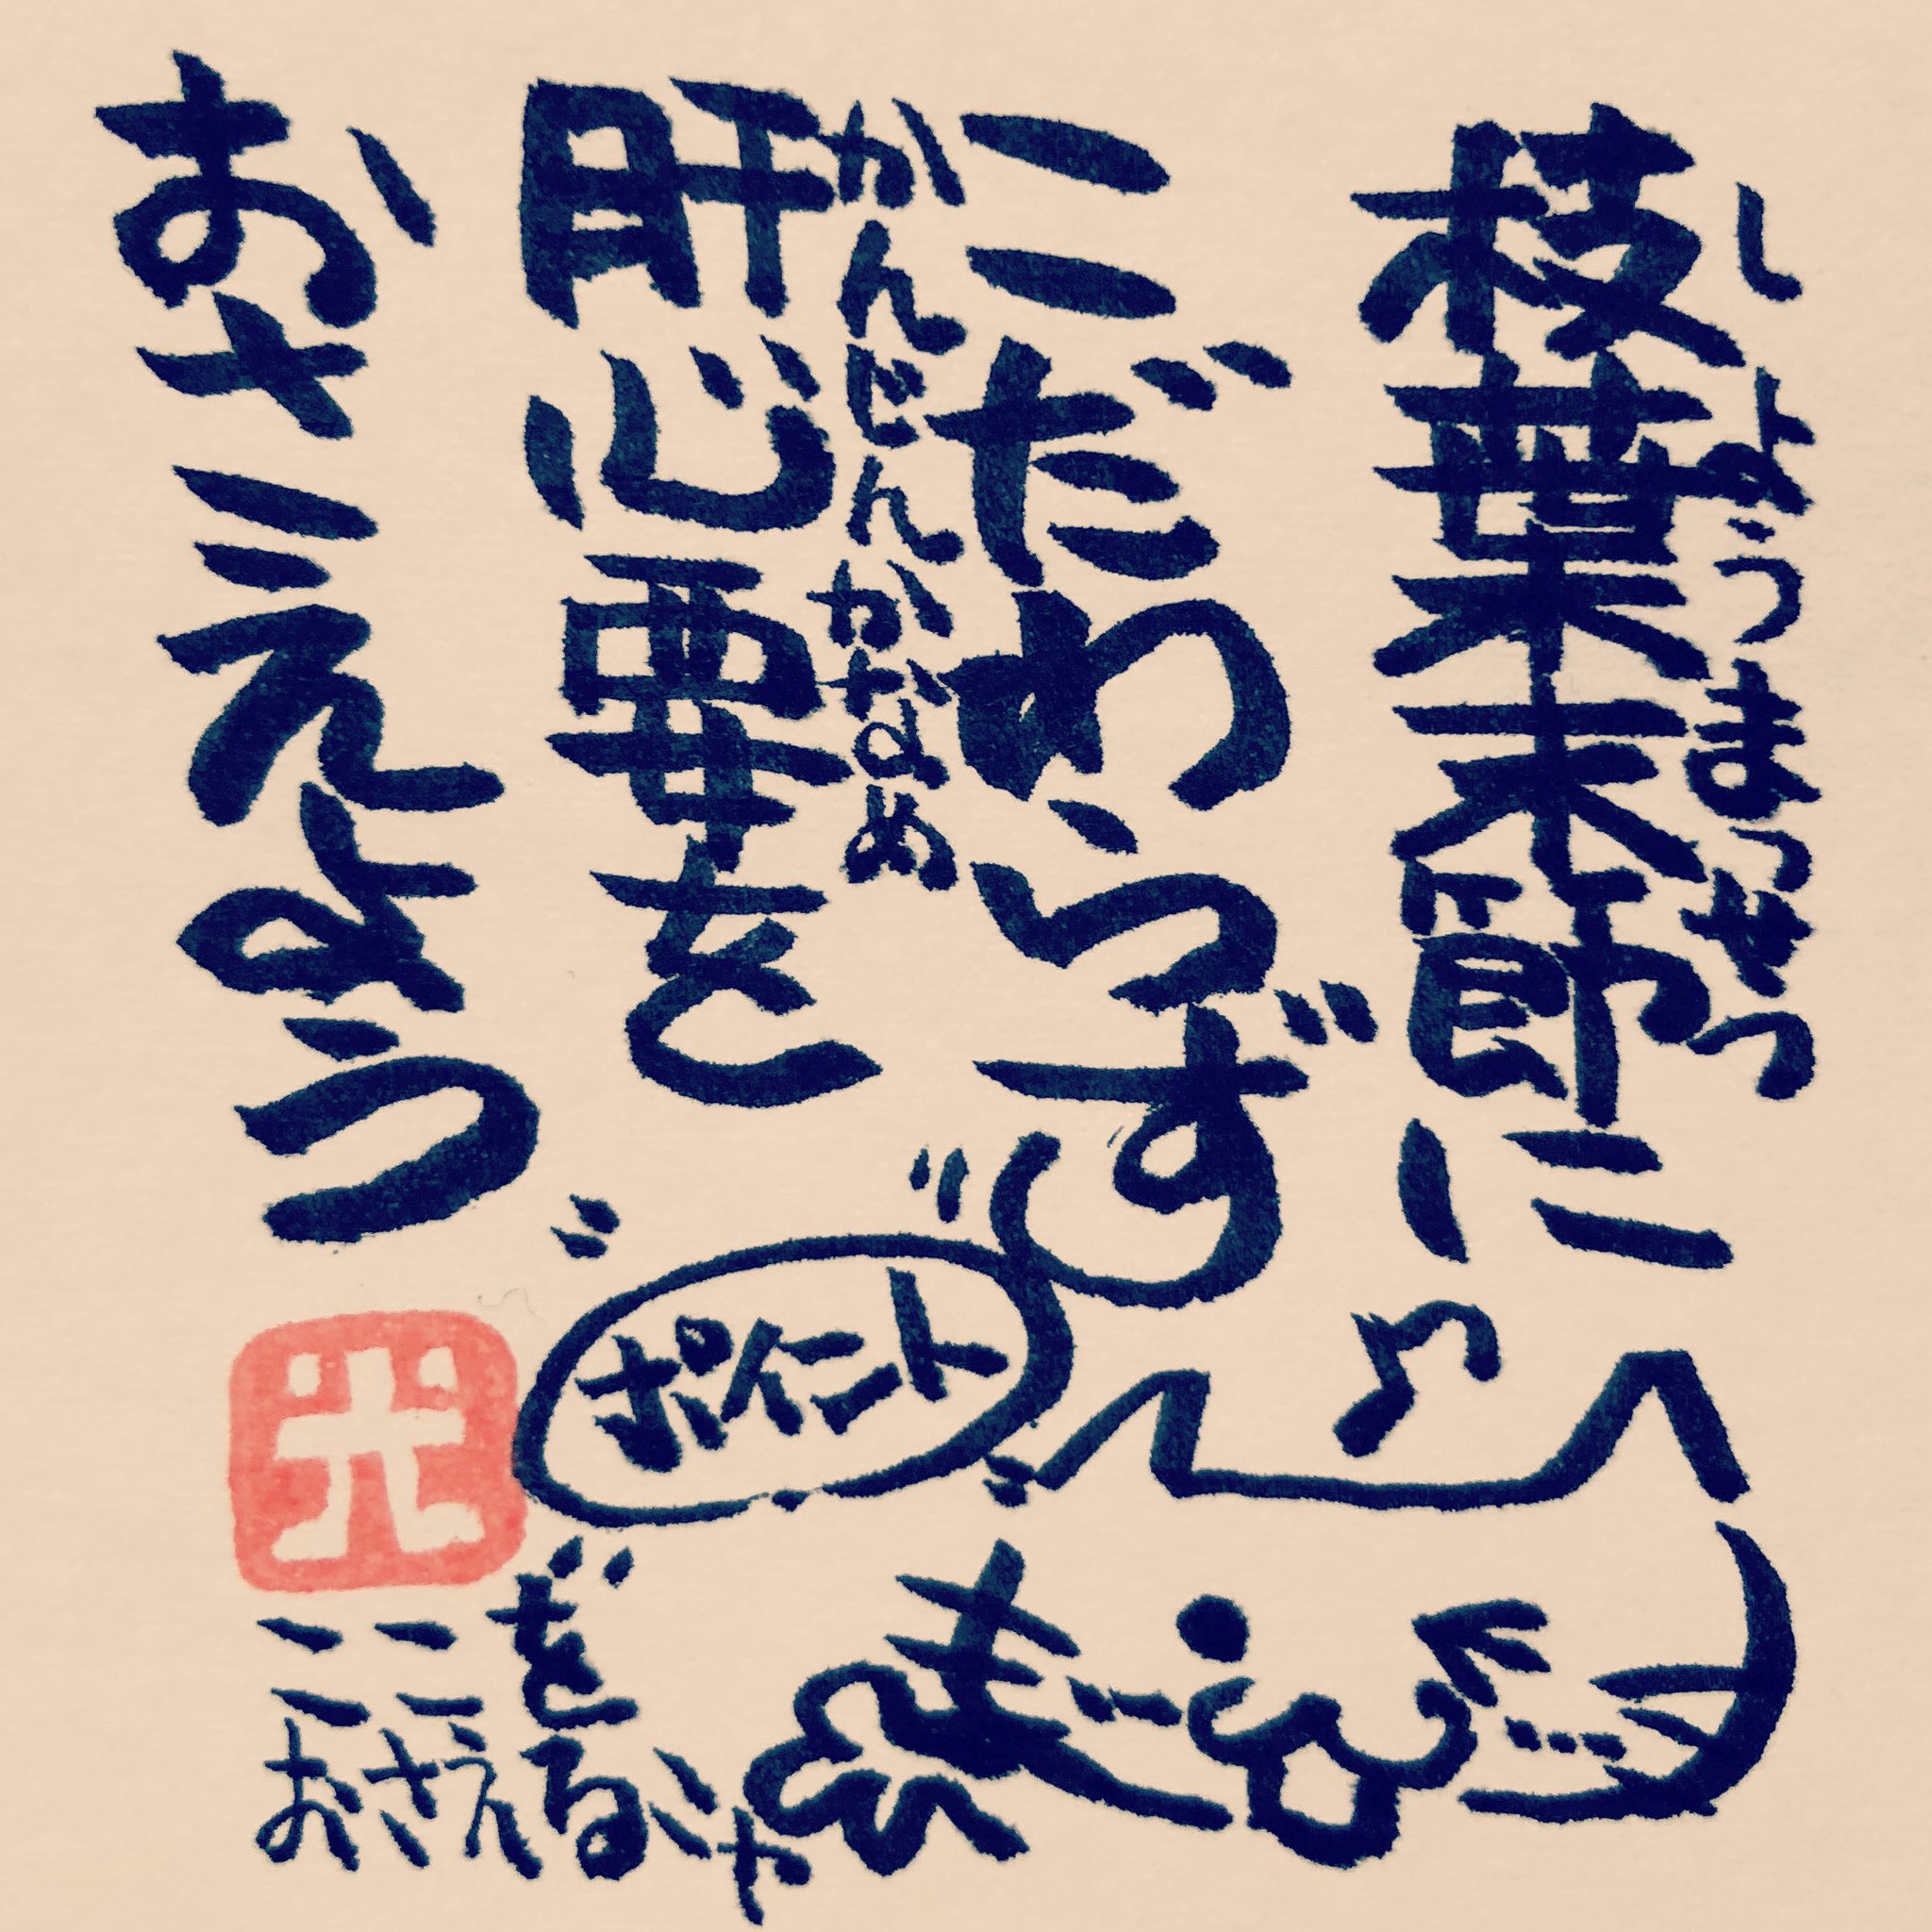 枝葉末節に
しようまっせつ
こだわらず
肝心要を
かんじんかなめ
おさえよう
ポイント
ここを
おさえるにゃ
光